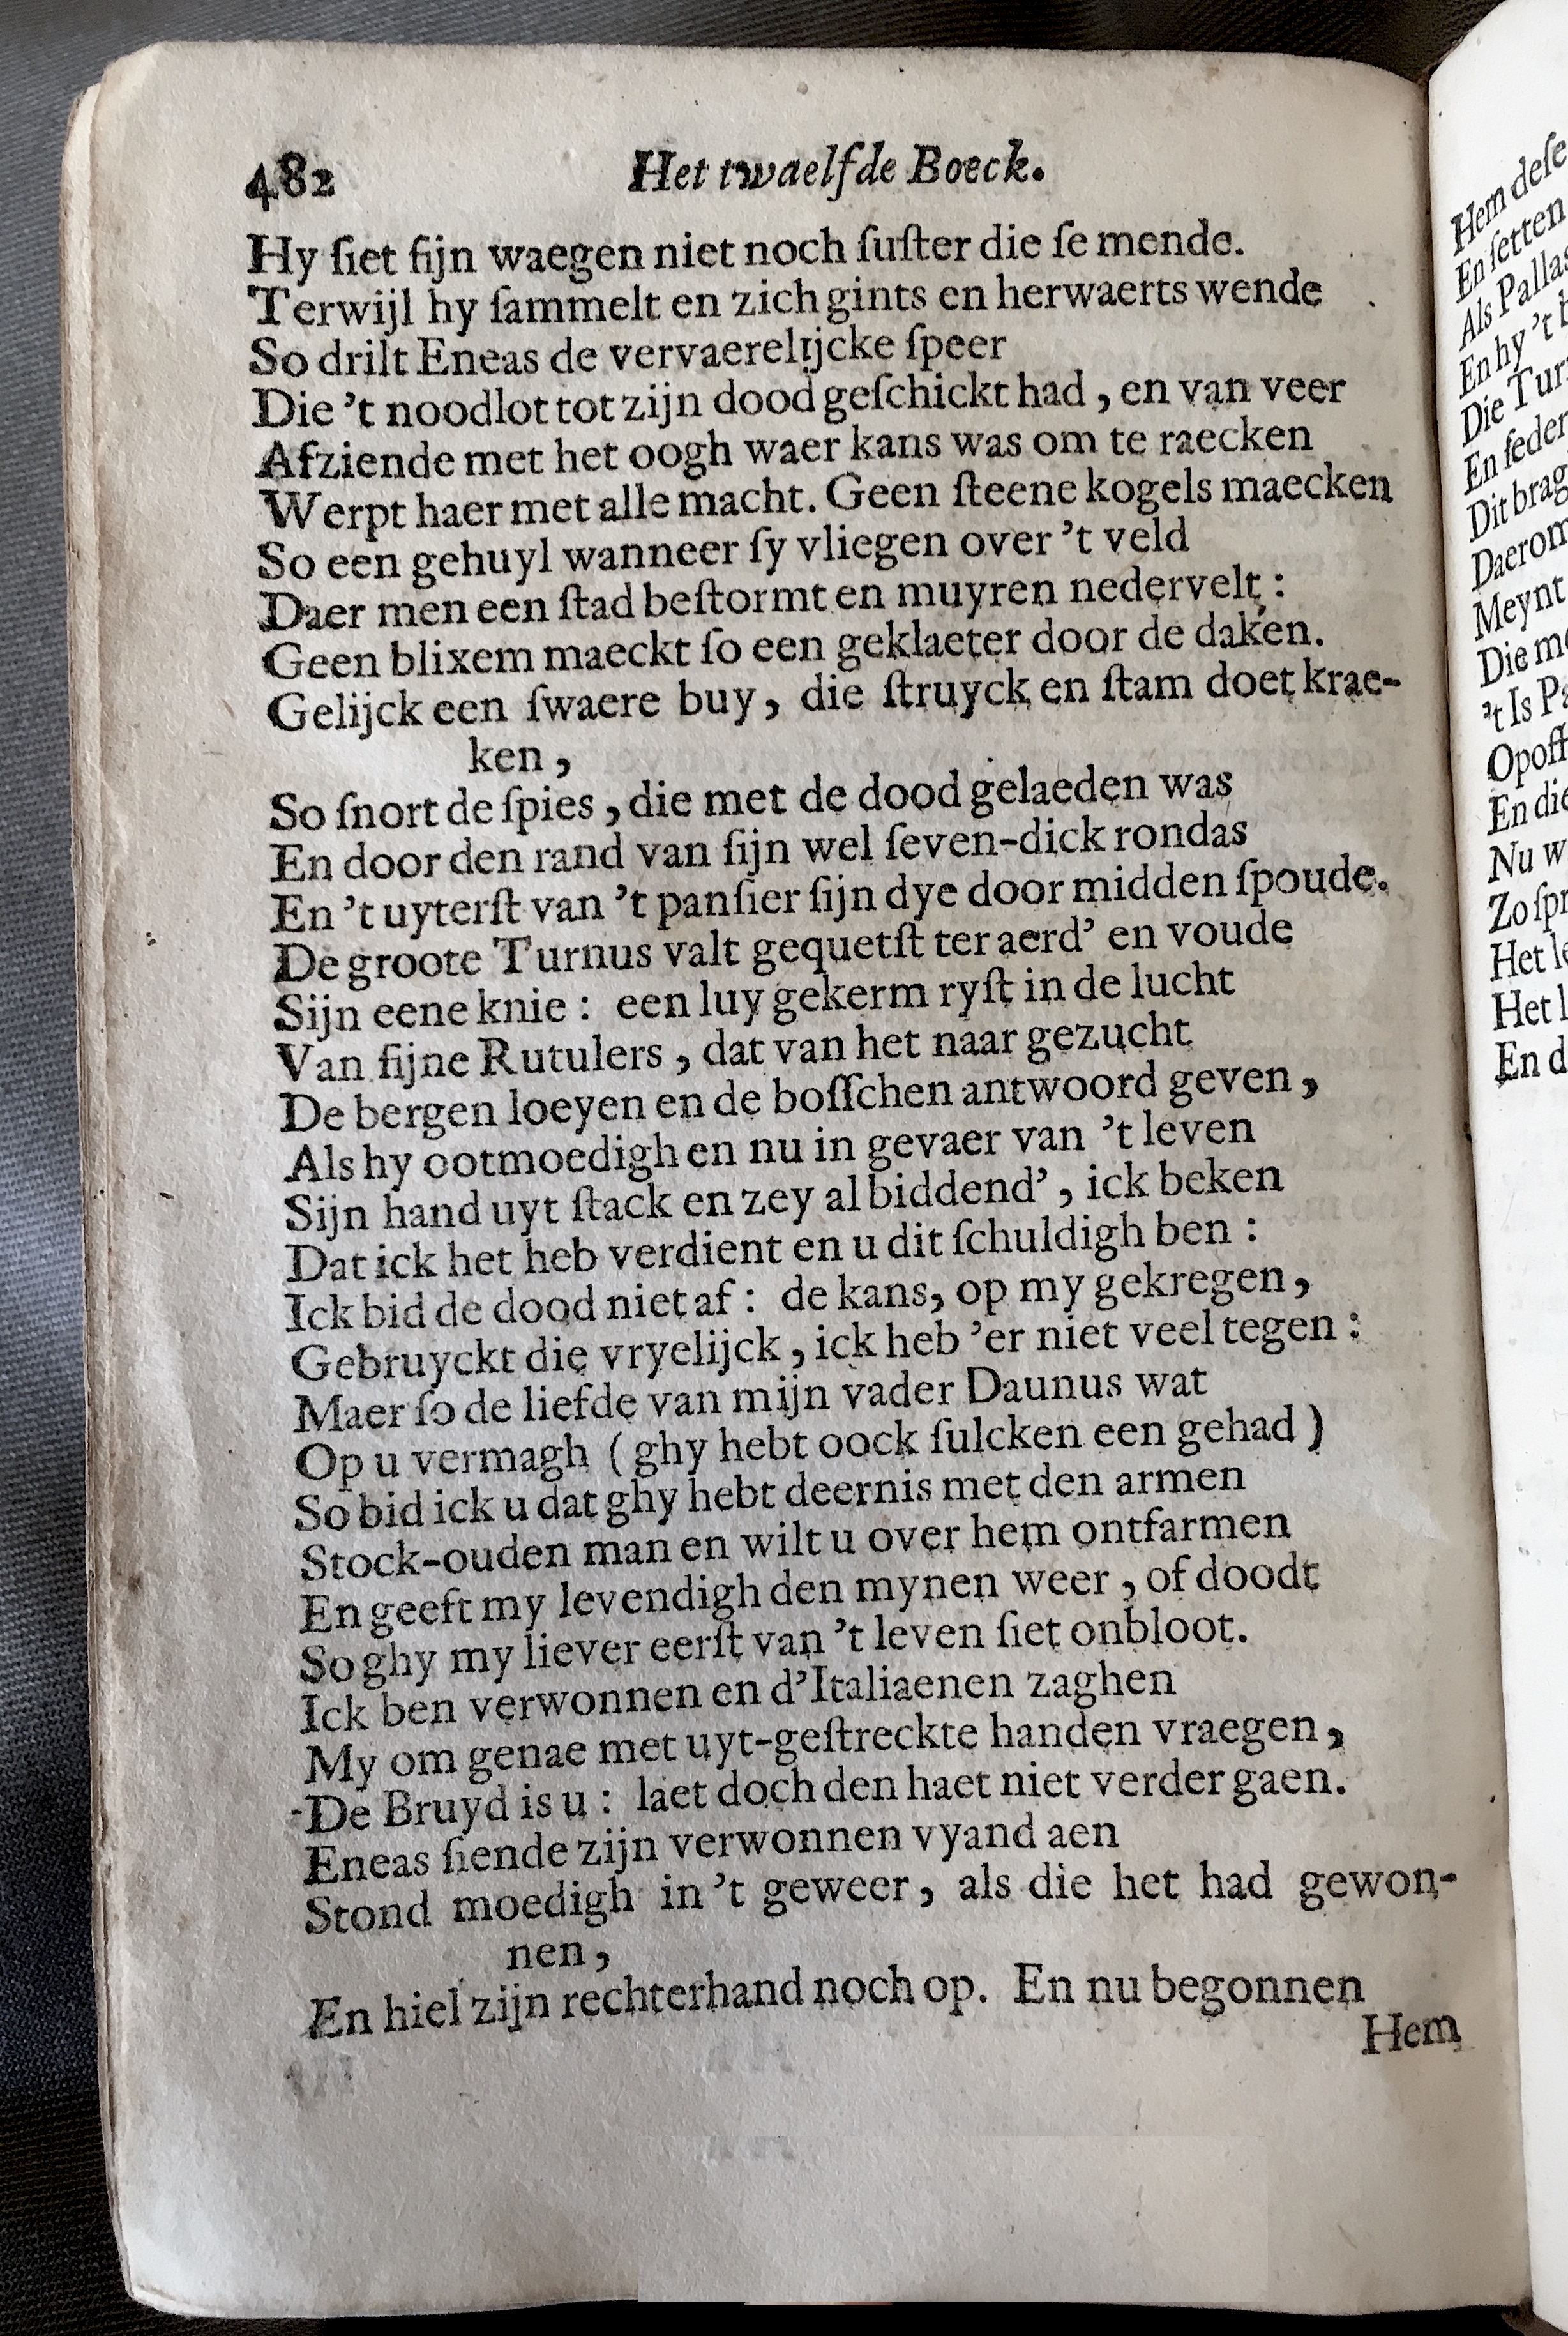 482 Het twaelfde Boeck.
Hy ſiet ſijn waegen niet noch ſuſter die ſe mende.
Terwijl hy ſammelt en zich gints en herwaerts wende
So drilt Eneas de vervaerelijcke ſpeer
Die 't noodlot tot zijn dood geſchickt had, en van veer
Afziende met het oogh waer kans was om te raecken
Werpt haer met alle macht. Geen ſteene kogels maecken
So een gehuyl wanneer ſy vliegen over 't veld
Daer men een ſtad beſtormt en muyren nedervelt:
Geen blixem maeckt ſo een geklaeter door de daken.
Gelijck een ſwaere buy, die ſtruyck en ſtam doet krae-
ken,
So ſnort de ſpies, die met de dood gelaeden was
En door den rand van ſijn wel ſeven-dick rondas
En 't uyterſt van 't panſier ſijn dye door midden ſpoude.
De groote Turnus valt gequetſt ter aerd' en voude
Sijn eene knie: een luy gekerm ryſt in de lucht
Van ſijne Rutulers, dat van het naar gezucht
De bergen loeyen en de boſſchen antwoord geven,
Als hy ootmoedigh en nu in gevaer van 't leven
Sijn hand uyt ſtack en zey al biddend', ick beken
Dat ick het heb verdient en u dit ſchuldigh ben:
Ick bid de dood niet af: de kans, op my gekregen,
Gebruyckt die vryelijck, ick heb 'er niet veel tegen:
Maer ſo de liefde van mijn vader Daunus wat
Op u vermagh (ghy hebt oock ſulcken een gehad)
So bid ick u dat ghy hebt deernis met den armen
Stock-ouden man en wilt u over hem ontfarmen
En geeft my levendigh den mynen weer, of doodt
So ghy my liever eerſt van 't leven ſiet onbloot.
Ick ben verwonnen en d'Italiaenen zaghen
My om genae met uyt-geſtreckte handen vraegen,
De Bruyd is u: laet doch den haet niet verder gaen.
Eneas ſiende zijn verwonnen vyand aen
Stond moedigh in 't geweer, als die het had gewon-
nen,
En hiel zijn rechterhand noch op. En nu begonnen
Hem
Hem deſe
En ſetten
Als Pallas
En hy 't
Die Tur
En ſeder
Dit brag
Daerom
Meynt
Die me
't Is Pa
Opoff
En die
Nu w
Zo ſpr
Het le
Het l
En d